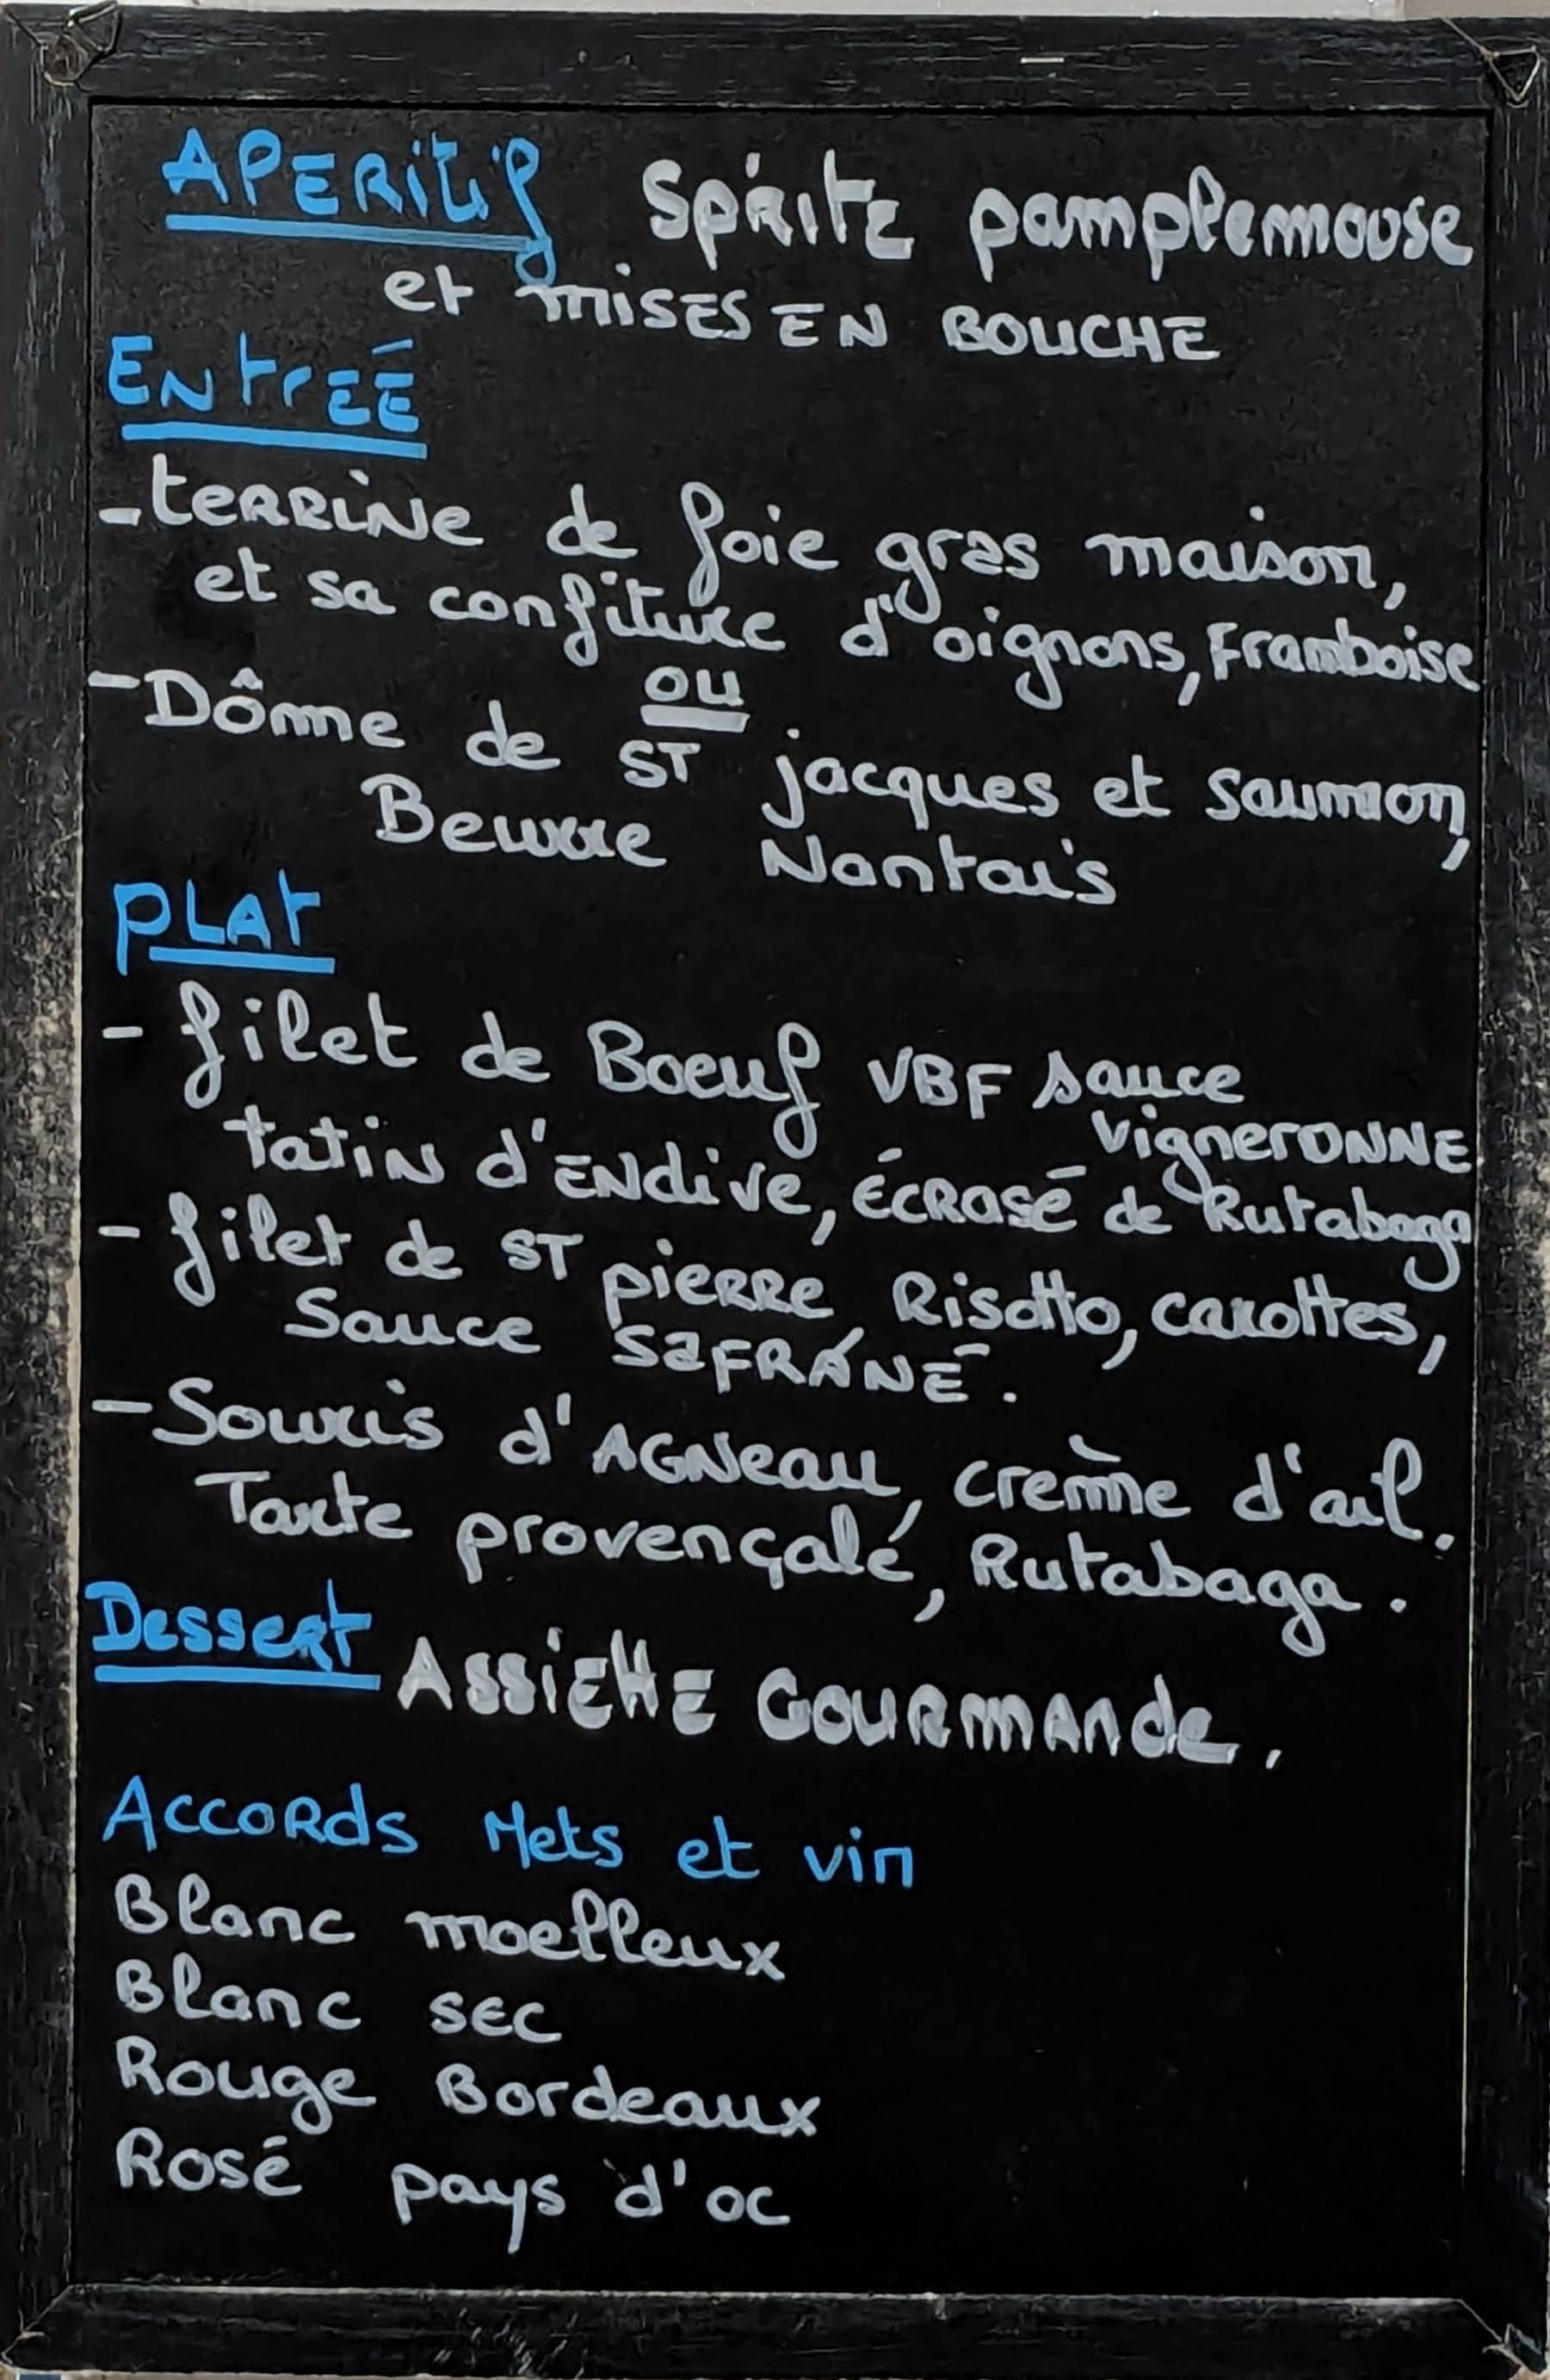 APERITIF Spritz pamplemousse
et mises EN BOUCHE
ENtrEÉ
- terrine de foie gras maison,
et sa confiture d'oignons, Framboise
ou
- Dôme de ST jacques et saumon,
Beurre Nantais
PLAT
- filet de Boeuf VBF sauce
vigneronne
tatin d'Endive, écrasé de Rutabaga
- filet de ST pierre Risotto, carottes,
Sauce safrané.
- Souris d'Agneau, crème d'ail.
Tarte provençale, Rutabaga.
Dessert Assiette Gourmande.
Accords Mets et vin
Blanc moelleux
Blanc sec
Rouge Bordeaux
Rosé pays d'oc